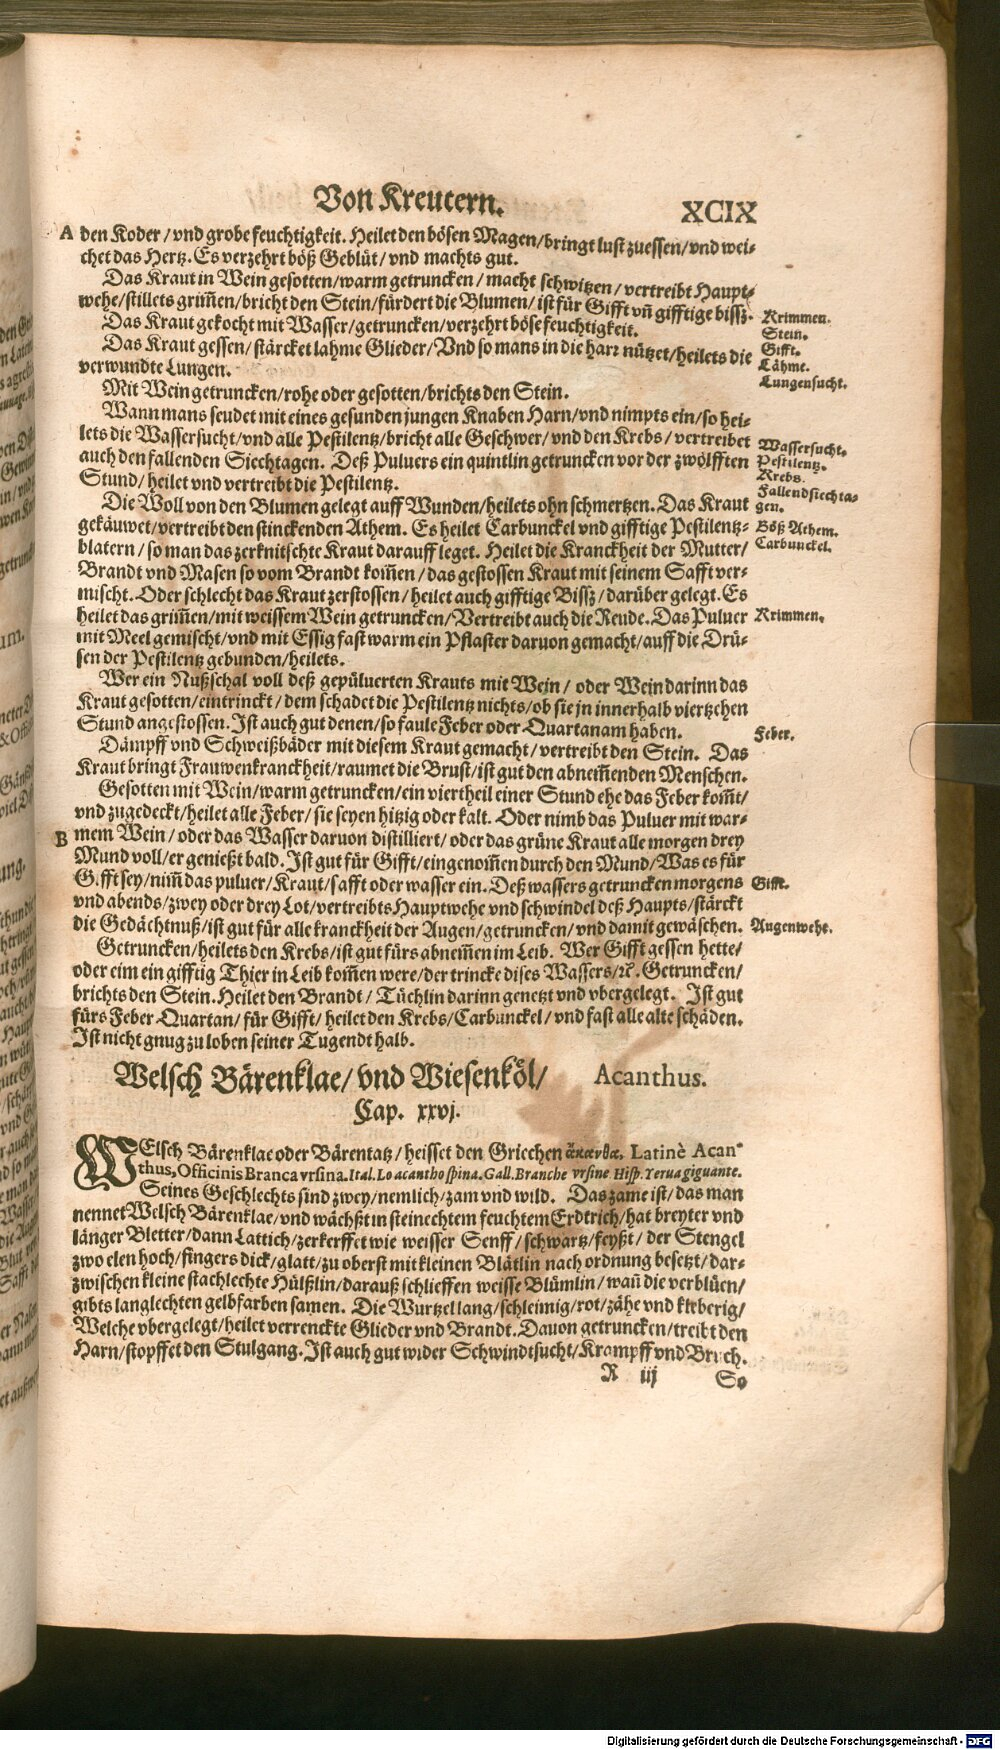 Von Kreutern.
XCIX
A den Koder / vnd grobe feuchtigkeit. Heilet den bösen Magen/bringt lust zuessen/vnd wei-
chet das Hertz. Es verzehrt böß Geblüt/ vnd machts gut.
Das Kraut in Wein gesotten/warm getruncken/ macht schwitzen/ vertreibt Haupt-
wehe/stillets grim̃en/bricht den Stein/fürdert die Blumen/ ist für Gifft vñ gifftige bissz.
Krimmen.
Das Kraut gekocht mit Wasser/getruncken/verzehrt böse feuchtigkeit.
Stein.
Das Kraut gessen/stärcket lahme Glieder/Vnd so mans in die harr nützet/heilets die
Gifft.
Lähme.
verwundte Lungen.
Lungensucht.
Mit Wein getruncken/rohe oder gesotten/brichts den Stein.
Wann mans seudet mit eines gesunden jungen Knaben Harn/vnd nimpts ein/so hei-
lets die Wassersucht/vnd alle Pestilentz/bricht alle Geschwer/vnd den Krebs/ vertreibet
Wassersucht.
auch den fallenden Siechtagen. Deß Puluers ein quintlin getruncken vor der zwölfften
Pestilentz.
Krebs.
Stund/heilet vnd vertreibt die Pestilentz.
Fallendsiechta-
Die Woll von den Blumen gelegt auff Wunden/heilets ohn schmertzen. Das Kraut
gen.
gekäuwet/vertreibt den stinckenden Athem. Es heilet Carbunckel vnd gifftige Pestilentz-
Böß Athem.
blatern/so man das zerknitschte Kraut darauff leget. Heilet die Kranckheit der Mutter/
Carbunckel.
Brandt vnd Masen so vom Brandt kom̃en/das gestossen Kraut mit seinem Safft ver-
mischt. Oder schlecht das Kraut zerstossen/heilet auch gifftige Bissz/darüber gelegt. Es
heilet das grim̃en/mit weissem Wein getruncken/Vertreibt auch die Reude. Das Puluer
Krimmen.
mit Meel gemischt/vnd mit Essig fast warm ein Pflaster daruon gemacht/auff die Drü-
sen der Pestilentz gebunden/heilets.
Wer ein Nußschal voll deß gepüluerten Krauts mit Wein/ oder Wein darinn das
Kraut gesotten/eintrinckt/dem schadet die Pestilentz nichts/ob sie jn innerhalb viertzehen
Stund angestossen. Ist auch gut denen/so faule Feber oder Quartanam haben.
Feber.
Dämpff vnd Schweißbäder mit diesem Kraut gemacht/vertreibt den Stein. Das
Kraut bringt Frauwenkranckheit/raumet die Brust/ist gut den abnem̃enden Menschen.
Gesotten mit Wein/warm getruncken/ein viertheil einer Stund ehe das Feber kom̃t/
vnd zugedeckt/heilet alle Feber/sie seyen hitzig oder kalt. Oder nimb das Puluer mit war-
B mem Wein/ oder das Wasser daruon distilliert/oder das grüne Kraut alle morgen drey
Mund voll/er genießt bald. Ist gut für Gifft/eingenom̃en durch den Mund/Was es für
Gifft sey/nim̃ das puluer/Kraut/safft oder wasser ein. Deß wassers getruncken morgens
Gifft.
vnd abends/zwey oder drey Lot/vertreibts Hauptwehe vnd schwindel deß Haupts/stärckt
die Gedächtnuß/ist gut für alle kranckheit der Augen/getruncken/vnd damit gewäschen.
Augenwehe.
Getruncken/heilets den Krebs/ist gut fürs abnem̃en im Leib. Wer Gifft gessen hette/
oder eim ein gifftig Thier in Leib kom̃en were/der trincke dises Wassers/ꝛc. Getruncken/
brichts den Stein. Heilet den Brandt/ Tüchlin darinn genetzt vnd vbergelegt. Ist gut
fürs Feber Quartan/für Gifft/ heilet den Krebs/Carbunckel/vnd fast alle alte schäden.
Ist nicht gnug zu loben seiner Tugendt halb.
Welsch Bärenklae/ vnd Wiesenköl/ Acanthus.
Cap. xxvj.
WElsch Bärenklae oder Bärentatz/heisset den Griechen ἄκανθα, Latinè Acan-
thus, Officinis Branca vrsina. Ital. Lo acantho spina. Gall. Branche vrsine Hisp. Yerua giguante.
Seines Geschlechts sind zwey/nemlich/zam vnd wild. Das zame ist/das man
nennet Welsch Bärenklae/vnd wächßt in steinechtem feuchtem Erdtrich/hat breyter vnd
länger Bletter/dann Lattich/zerkerffet wie weisser Senff/schwartz/feyßt/ der Stengel
zwo elen hoch/fingers dick/glatt/zu oberst mit kleinen Blätlin nach ordnung besetzt/dar-
zwischen kleine stachlechte Hülßlin/darauß schlieffen weisse Blümlin/wañ die verblüen/
gibts langlechten gelbfarben samen. Die Wurtzel lang/schleimig/rot/zähe vnd kleberig/
Welche vbergelegt/heilet verrenckte Glieder vnd Brandt. Dauon getruncken/treibt den
Harn/stopffet den Stulgang. Ist auch gut wider Schwindtsucht/Krampff vnd Bruch.
R iij
So
Digitalisierung gefördert durch die Deutsche Forschungsgemeinschaft - DFG